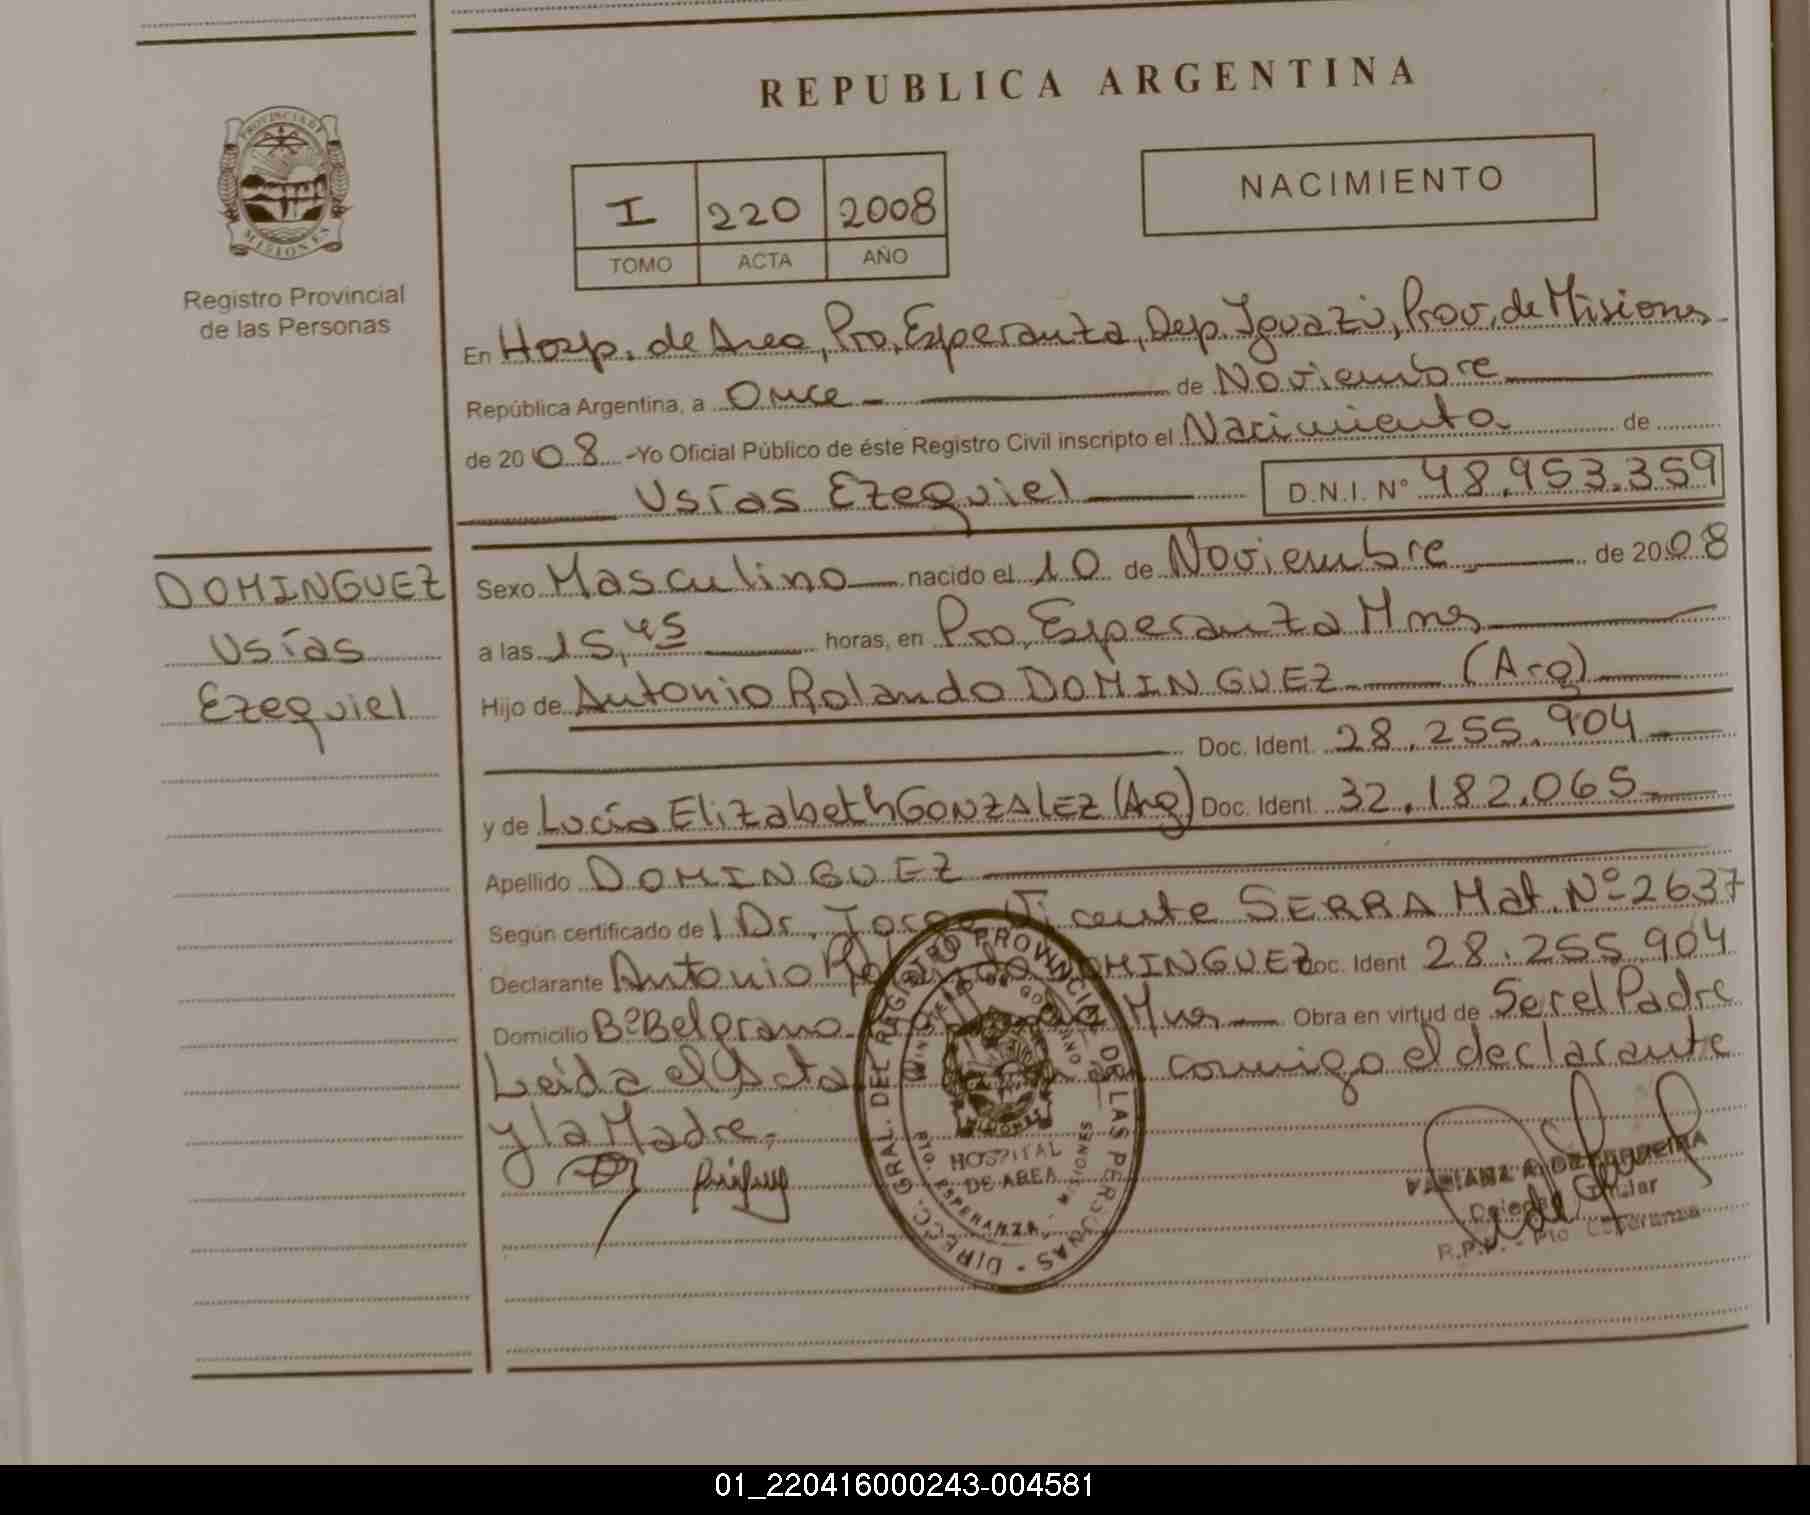 REPUBLICA ARGENTINA
PROVINCIA DE
MISIONES
Registro Provincial
de las Personas
I 220 2008
TOMO ACTA AÑO
NACIMIENTO
En Hosp. de Area, Pto, Esperanza, Dep. Iguazú, Prov, de Misiones
República Argentina, a Once de Noviembre
de 2008 -Yo Oficial Público de éste Registro Civil inscripto el Nacimiento de
Usías Ezequiel D.N.I. N° 48.953.359
DOMINGUEZ
Usías
Ezequiel
Sexo Masculino nacido el 10 de Noviembre de 2008
a las 15,45 horas, en Pto, Esperanza Mnes
Hijo de Antonio Rolando DOMINGUEZ (Arg)
Doc. Ident. 28.255.904
y de Lucía Elizabeth GONZALEZ (Arg) Doc. Ident. 32.182.065
Apellido DOMINGUEZ
Según certificado de l Dr. Jorge Vicente SERRA Mat. Nº 2637
Declarante Antonio Rolando DOMINGUEZ Doc. Ident 28.255.904
Domicilio Bº Belgrano Mnes Obra en virtud de Ser el Padre
Leída el Acta conmigo el declarante
y la Madre,
DIRECC. GRAL. DEL REGISTRO PROVINCIAL DE LAS PERSONAS
MINISTERIO DE GOBIERNO
HOSPITAL
DE AREA
PTO. ESPERANZA - MISIONES
Titular
R.P.P. - Pto Esperanza
01_220416000243-004581